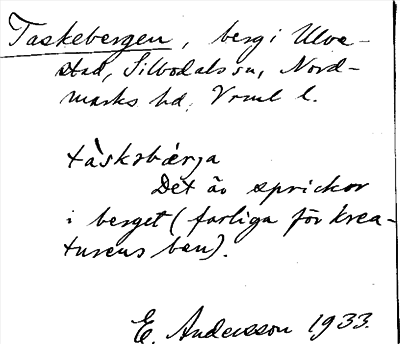 Taskebergen, berg i Ulve-
stad, Silbodals sn, Nord-
marks hd, Vrml l.
tàskebærja
Det är sprickor
i berget (farliga för krea-
turens ben).
E. Andersson 1933.